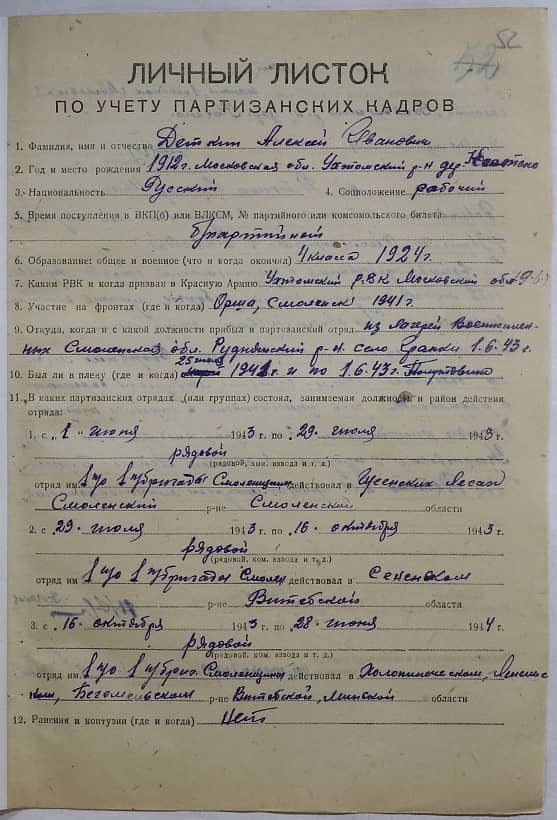 52
52
ЛИЧНЫЙ ЛИСТОК
ПО УЧЕТУ ПАРТИЗАНСКИХ КАДРОВ
1. Фамилия, имя и отчество Деткин Алексей Иванович
2. Год и место рождения 1912 г. Московская обл. Ухтомский р-н дер.
3. Национальность Русский 4. Соцположение рабочий
5. Время поступления в ВКП(б) или ВЛКСМ, № партийного или комсомольского билета
б/партийной
6. Образование: общее и военное (что и когда окончил) 4 класса 1924 г.
7. Каким РВК и когда призван в Красную Армию Ухтомский р.В.К Московский обл.
8. Участие на фронтах (где и когда) Орша, Смоленск 1941 г.
9. Откуда, когда и с какой должности прибыл в партизанский отряд из лагерей Военнплен-
ных Смоленской обл. Руднянский р-н. село 1.6.43 г.
10. Был ли в плену (где и когда) 1942 г. и по 1.6.43 г.
11. В каких партизанских отрядах (или группах) состоял, занимаемая должность и район действия
отряда:
1. с „1" июня 1943 г. по 29. июля 1943 г.
рядовой
(рядовой, ком. взвода и т. д.)
отряд им. 1 у/бригады Смоленщин действовал в лесах
Смоленский р-не Смоленской области
2. с 29. июля 1943 г. по 16. октября 1943 г.
рядовой
(рядовой, ком. взвода и т. д.)
отряд им. 1 у/бригады Смолен действовал в Сененском
р-не Витебской области
3. с 16. октября 1943 г. по 28 июня 1944 г.
рядовой
(рядовой, ком. взвода и т. д.)
отряд им. Смоленщины действовал в Холопиническом,
Бегомельском р-не Витебской, Минской области
12. Ранения и контузии (где и когда) Нет